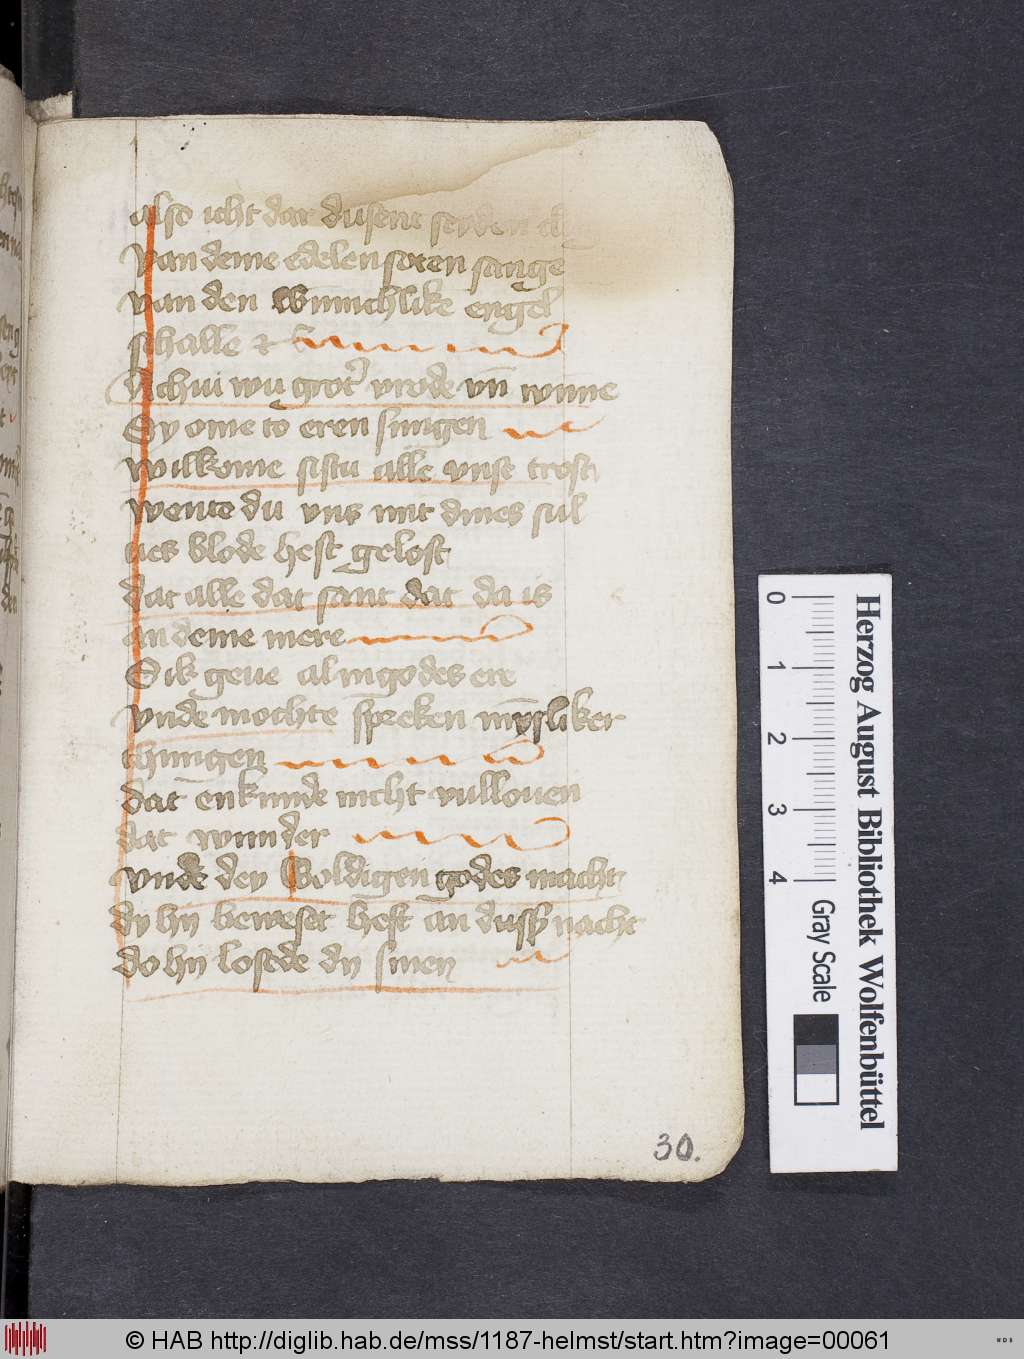 also icht dar dusent seyden
van deme edelen soten sange
van den wunnichlike engel
schalle
Achui wu grot vrode vn wnne
Sy ome to eren singen
wilkome sistu alle vnse trost
wente du vns mit dines sul
ues blode hest gelost
dat alle dat sant dat da is
an deme mere
Sik geue al in godes ere
vnde mochte spreken mysliker
thungen
dat enkunde nicht vullouen
dat wunder
vnde dey woldigen godes macht
dy hy bewest heft an duss nacht
do hy losede dy sinen
30.
Herzog August Bibliothek Wolfenbüttel
0 1 2 3 4
Gray Scale
© HAB http://diglib.hab.de/mss/1187-helmst/start.htm?image=00061